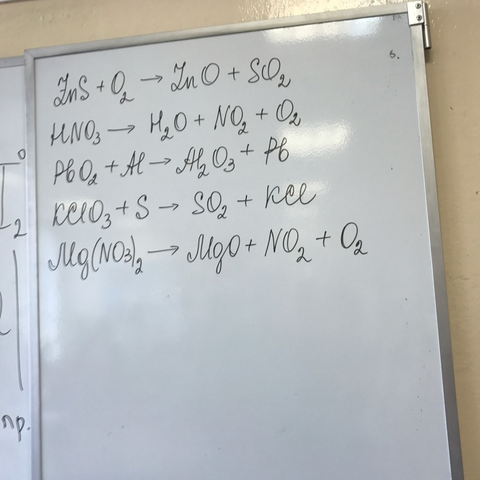 ZnS + O₂ → ZnO + SO₂
HNO₃ → H₂O + NO₂ + O₂
PbO₂ + Al → Al₂O₃ + Pb
KClO₃ + S → SO₂ + KCl
Mg(NO₃)₂ → MgO + NO₂ + O₂
пр.